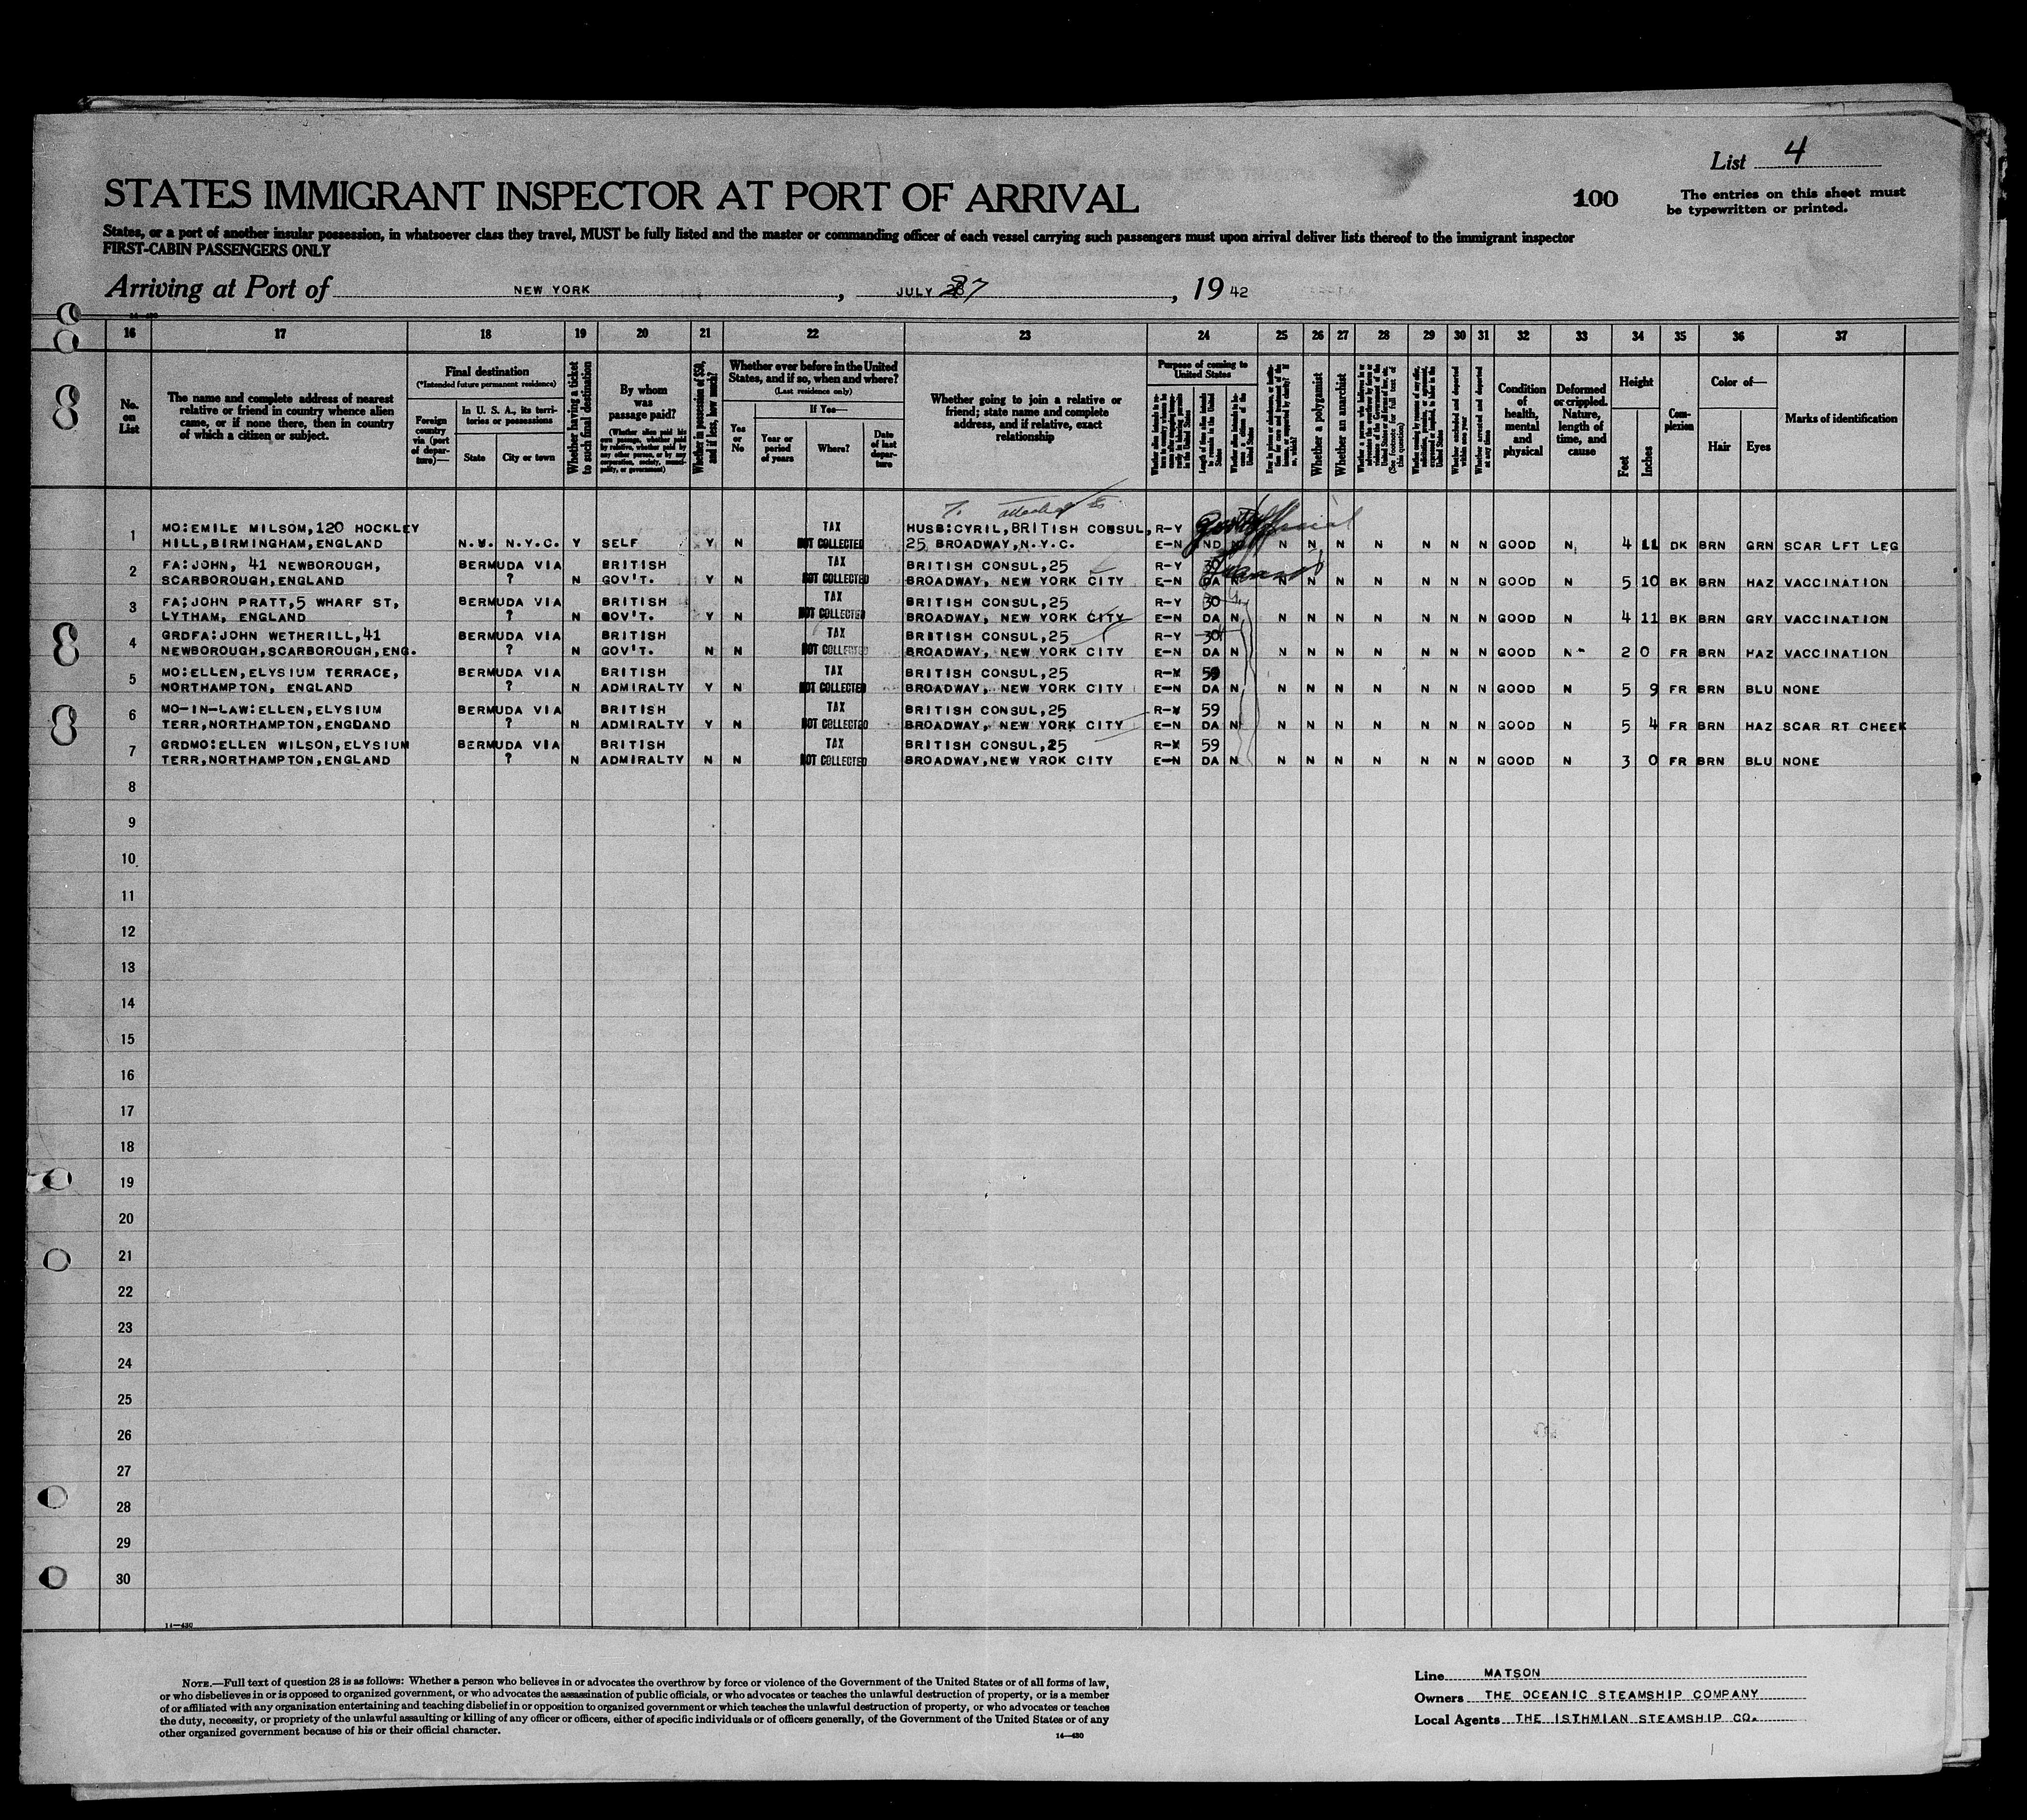 List 4
STATES IMMIGRANT INSPECTOR AT PORT OF ARRIVAL
100
The entries on this sheet must
be typewritten or printed.
States, or a port of another insular possession, in whatsoever class they travel, MUST be fully listed and the master or commanding officer of each vessel carrying such passengers must upon arrival deliver lists thereof to the immigrant inspector
FIRST-CABIN PASSENGERS ONLY
Arriving at Port of NEW YORK, JULY 27, 1942
16 17 18 19 20 21 22 23 24 25 26 27 28 29 30 31 32 33 34 35 36 37
No. on List
The name and complete address of nearest
relative or friend in country whence alien
came, or if none there, then in country
of which a citizen or subject.
Final destination
(*Intended future permanent residence)
Foreign country via (port of departure)—
In U. S. A., its territories or possessions
State
City or town
Whether having a ticket to such final destination
By whom was passage paid?
(Whether alien paid his own passage, whether paid by relative, whether paid by any other person, or by any corporation, society, municipality, or government)
Whether in possession of $50, and if less, how much?
Whether ever before in the United States, and if so, when and where?
(Last residence only)
was
Yes or No
If Yes—
Year or period of years
Where?
Date of last departure
Whether going to join a relative or
friend; state name and complete
address, and if relative, exact
relationship
Purpose of coming to United States
Length of time alien intends to remain in the United States
Whether alien intends to become a citizen of the United States
Whether a polygamist
Whether an anarchist
(See footnote for full text of this question)
Whether excluded and deported within one year
Whether arrested and deported at any time
Condition of health, mental and physical
Deformed or crippled. Nature, length of time, and cause
Height
Feet
Inches
Complexion
Color of—
Hair
Eyes
Marks of identification
1 MO:EMILE MILSOM,120 HOCKLEY TAX HUSB:CYRIL,BRITISH CONSUL, R-Y
HILL,BIRMINGHAM,ENGLAND N.Y. N.Y.C. Y SELF Y N NOT COLLECTED 25 BROADWAY,N.Y.C. E-N IND N N N N N N N N GOOD N 4 11 DK BRN GRN SCAR LFT LEG
2 FA:JOHN, 41 NEWBOROUGH, BERMUDA VIA BRITISH TAX BRITISH CONSUL,25 R-Y 30
SCARBOROUGH,ENGLAND ? N GOV'T. Y N NOT COLLECTED BROADWAY, NEW YORK CITY E-N DA N N N N N N N GOOD N 5 10 BK BRN HAZ VACCINATION
3 FA;JOHN PRATT,5 WHARF ST, BERMUDA VIA BRITISH TAX BRITISH CONSUL,25 R-Y 30
LYTHAM, ENGLAND ? N GOV'T. Y N NOT COLLECTED BROADWAY, NEW YORK CITY E-N DA N N N N N N N N GOOD N 4 11 BK BRN GRY VACCINATION
4 GRDFA:JOHN WETHERILL,41 BERMUDA VIA BRITISH TAX BRITISH CONSUL,25 R-Y 30
NEWBOROUGH,SCARBOROUGH,ENG. ? N GOV'T. N N NOT COLLECTED BROADWAY, NEW YORK CITY E-N DA N N N N N N N N GOOD N 2 0 FR BRN HAZ VACCINATION
5 MO:ELLEN,ELYSIUM TERRACE, BERMUDA VIA BRITISH TAX BRITISH CONSUL,25 59
NORTHAMPTON, ENGLAND ? N ADMIRALTY Y N NOT COLLECTED BROADWAY, NEW YORK CITY E-N DA N N N N N N N N GOOD N 5 9 FR BRN BLU NONE
6 MO-IN-LAW:ELLEN,ELYSIUM BERMUDA VIA BRITISH TAX BRITISH CONSUL,25 59
TERR,NORTHAMPTON,ENGDAND ? N ADMIRALTY Y N NOT COLLECTED BROADWAY, NEW YORK CITY E-N DA N N N N N N N N GOOD N 5 4 FR BRN HAZ SCAR RT CHEEK
7 GRDMO:ELLEN WILSON,ELYSIUM BERMUDA VIA BRITISH TAX BRITISH CONSUL,25 59
TERR,NORTHAMPTON,ENGLAND ? N ADMIRALTY N N NOT COLLECTED BROADWAY,NEW YROK CITY E-N DA N N N N N N N N GOOD N 3 0 FR BRN BLU NONE
8
9
10
11
12
13
14
15
16
17
18
19
20
21
22
23
24
25
26
27
28
29
30
14—430
NOTE.—Full text of question 28 is as follows: Whether a person who believes in or advocates the overthrow by force or violence of the Government of the United States or of all forms of law,
or who disbelieves in or is opposed to organized government, or who advocates the assassination of public officials, or who advocates or teaches the unlawful destruction of property, or is a member
of or affiliated with any organization entertaining and teaching disbelief in or opposition to organized government or which teaches the unlawful destruction of property, or who advocates or teaches
the duty, necessity, or propriety of the unlawful assaulting or killing of any officer or officers, either of specific individuals or of officers generally, of the Government of the United States or of any
other organized government because of his or their official character.
14—430
Line MATSON
Owners THE OCEANIC STEAMSHIP COMPANY
Local Agents THE ISTHMIAN STEAMSHIP CO.